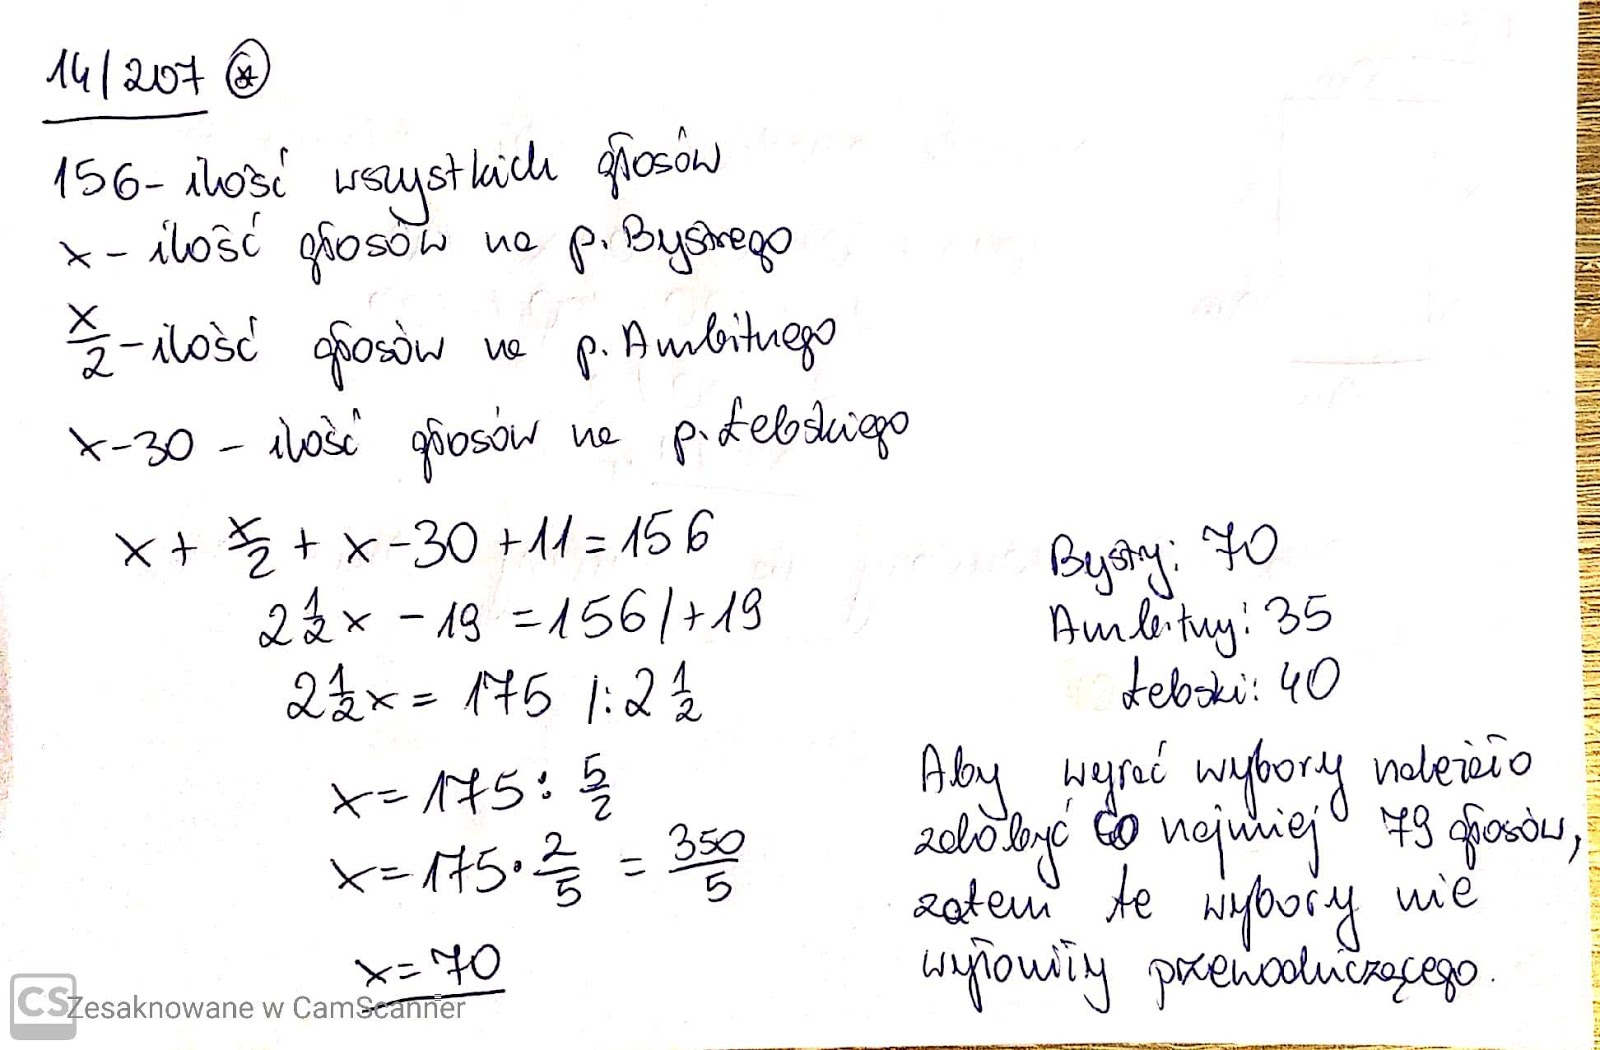 14/207 *
156 - ilość wszystkich głosów
x - ilość głosów na p. Bystrego
x/2 - ilość głosów na p. Ambitnego
x-30 - ilość głosów na p. Łebskiego
x + x/2 + x - 30 + 11 = 156
2 1/2 x - 19 = 156 /+19
2 1/2 x = 175 /: 2 1/2
x = 175 : 5/2
x = 175 · 2/5 = 350/5
x = 70
Bystry: 70
Ambitny: 35
Łebski: 40
Aby wygrać wybory należało
zdobyć co najmniej 79 głosów,
zatem te wybory nie
wyłoniły przewodniczącego.
CS Zesaknowane w CamScanner